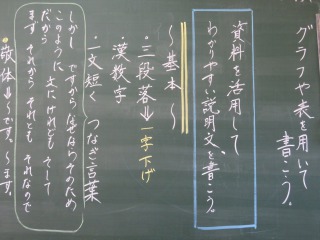 グラフや表を用いて
書こう。
資料を活用して
わかりやすい説明文を書こう。
～基本～
・三段落→一字下げ
・漢数字
・一文短く つなぎ言葉
しかし ですから なぜなら そのため
このように 文に けれども そして
だから
まず それから それとも それなので
・敬体→～です。～ます。